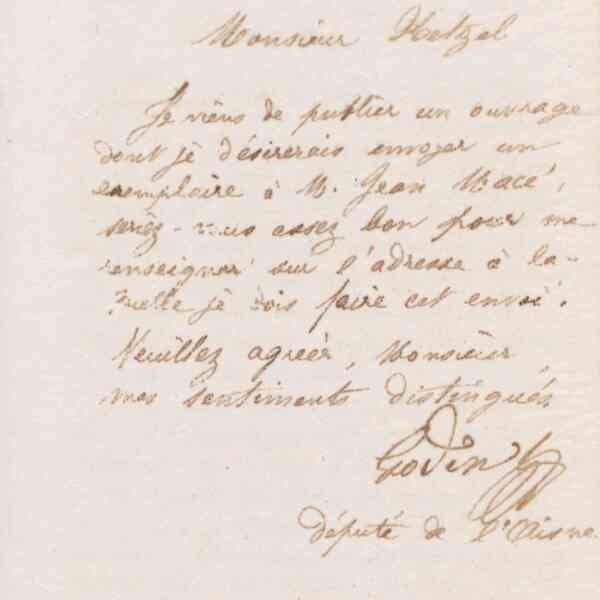 Monsieur Hetzel
Je viens de publier un ouvrage
dont je désirerais envoyer un
exemplaire à M. Jean Macé,
seriez-vous assez bon pour me
renseigner sur l'adresse à la-
quelle je dois faire cet envoi.
Veuillez agréer, Monsieur,
mes sentiments distingués
Godin
député de l'Aisne